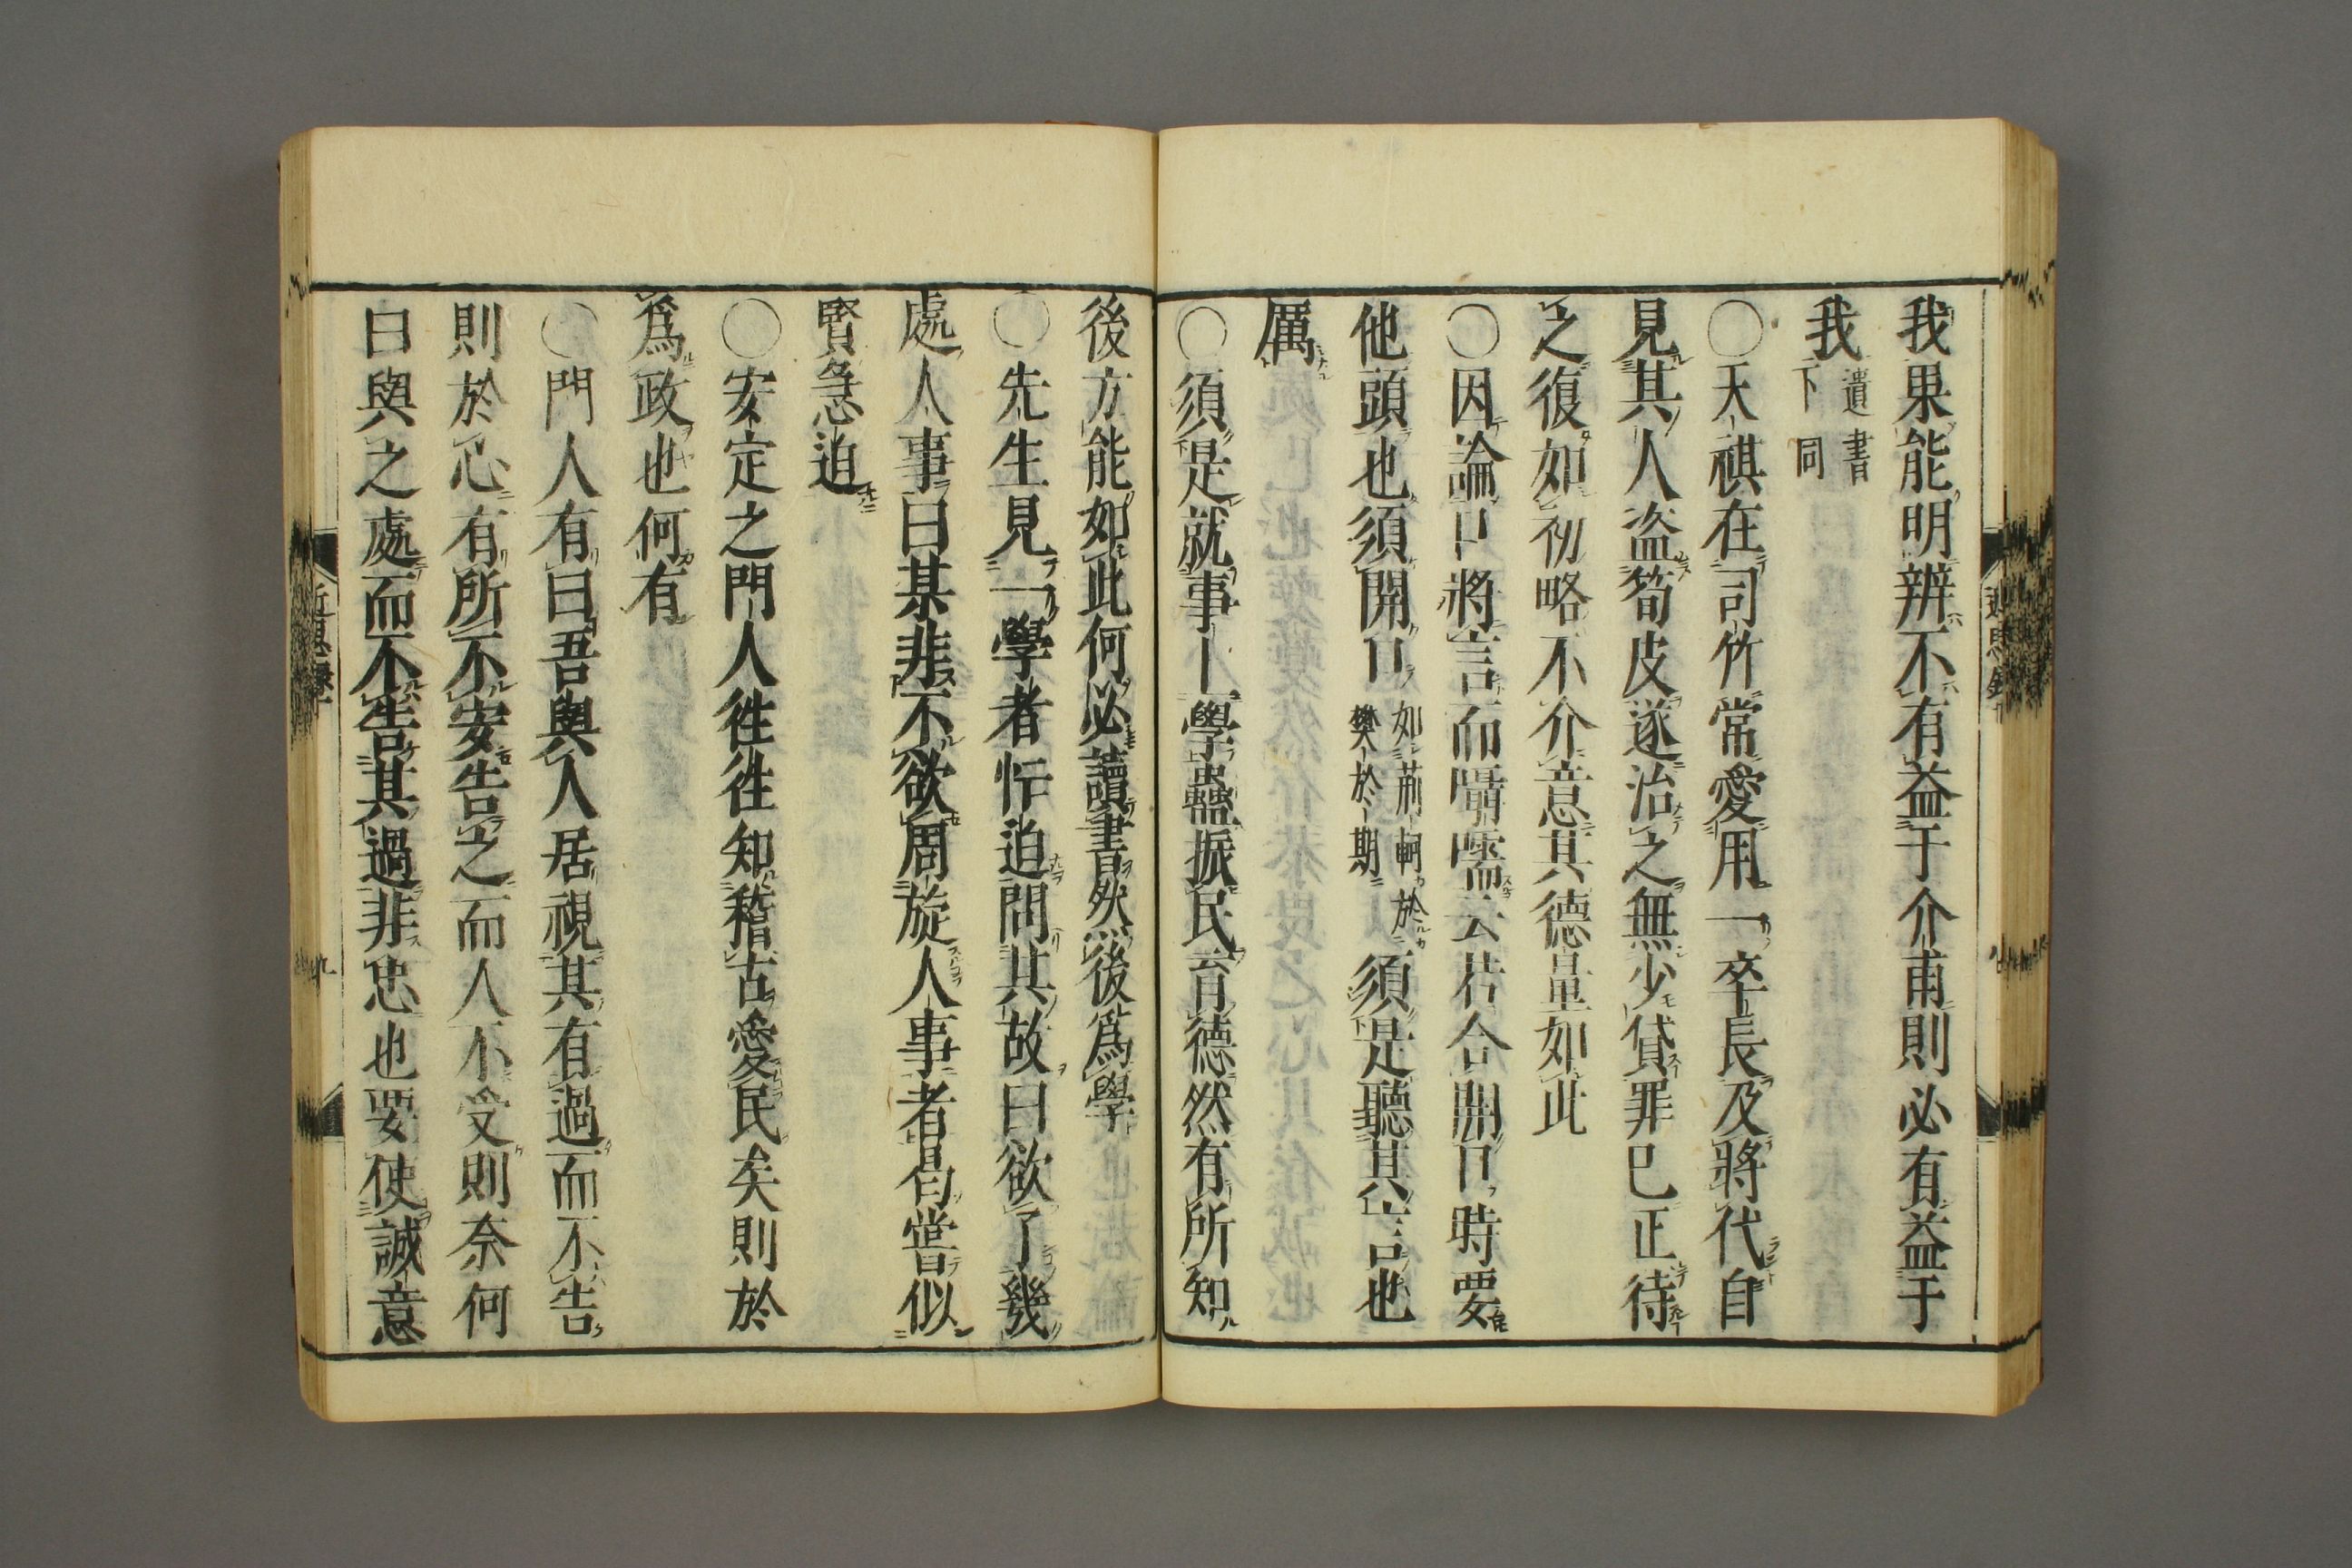 我果能明辨不有益于介甫則必有益于
我遺書下同
〇天祺在司竹常愛用一卒長及將代自
見其人盗筍皮遂治之無少貸罪已正待
之復如初略不介意其德量如此
〇因論口將言而囁嚅云若合開口時要
他頭也須開口如荊軻於樊於期須是聽其言也
厲
〇須是就事上學蠱振民育德然有所知
後方能如此何必讀書然後為學
〇先生見一學者忙迫問其故曰欲了幾
處人事曰某非不欲周旋人事者曷嘗似
賢急迫
〇安定之門人徃徃知稽古愛民矣則於
為政也何有
〇門人有曰吾與人居視其有過而不告
則於心有所不安告之而人不受則奈何
曰與之處而不告其過非忠也要使誠意
近思錄